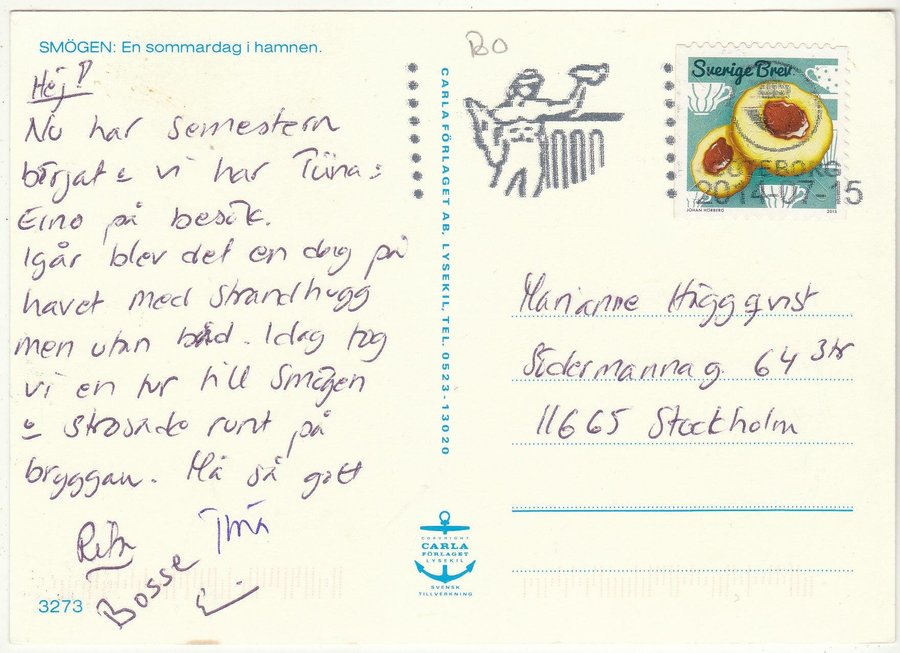 SMÖGEN: En sommardag i hamnen.
Hej!
Nu har semestern
börjat o vi har Tiina o
Eino på besök.
Igår blev det en dag på
havet med strandhugg
men utan bad. Idag tog
vi en tur till Smögen
o strosade runt på
bryggan. Må så gott
Bosse
3273
CARLA FÖRLAGET AB, LYSEKIL, TEL. 0523-13020
COPYRIGHT
CARLA
FÖRLAGET
LYSEKIL
SVENSK
TILLVERKNING
BO
Sverige Brev
GÖTEBORG
2014-07-15
JOHAN HÖRBERG 2013
Marianne Häggqvist
Södermannag. 64 3tr
11665 Stockholm